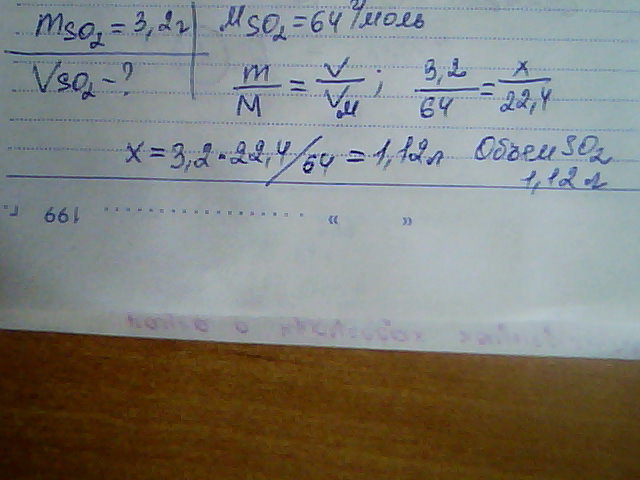 mSO₂ = 3,2 г
MSO₂ = 64 г/моль
VSO₂ - ?
m/M = V/Vм ; 3,2/64 = x/22,4
x = 3,2 · 22,4/64 = 1,12 л Объем SO₂
1,12 л
" " 199 г.